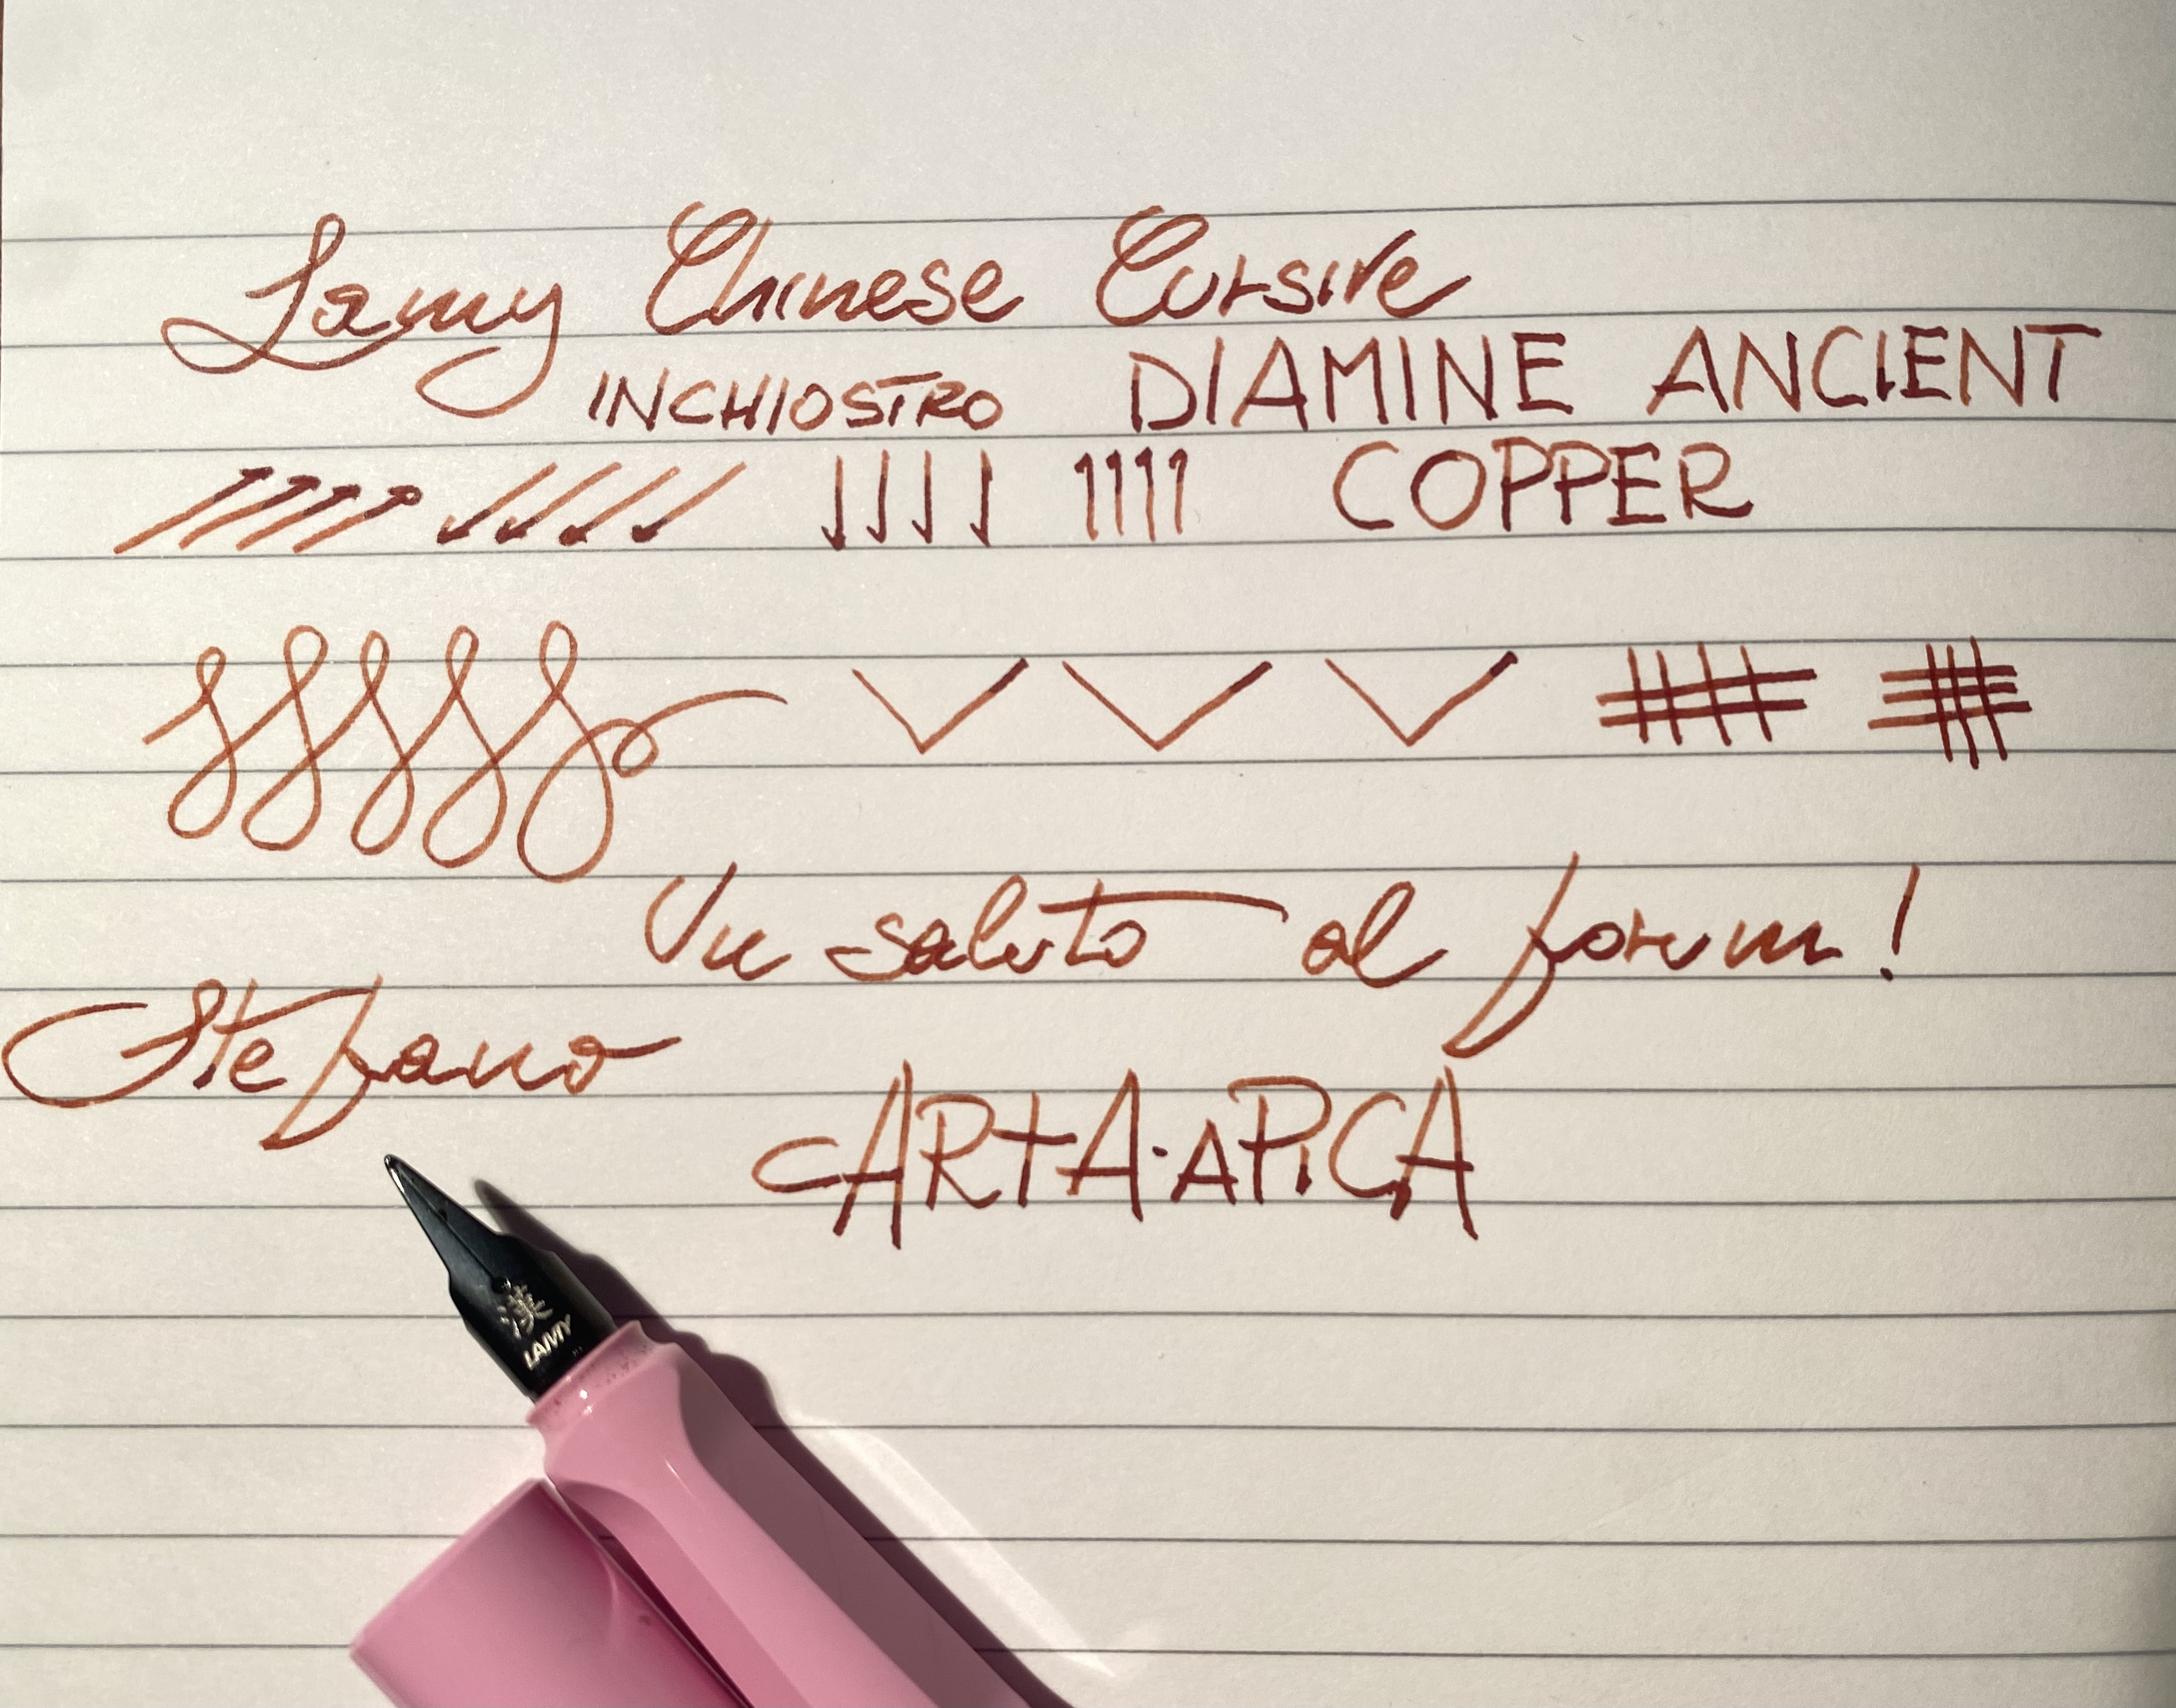 Lamy Chinese Cursive
INCHIOSTRO DIAMINE ANCIENT
COPPER
Un saluto al forum!
Stefano
CARTA·APICA
漢
LAMY